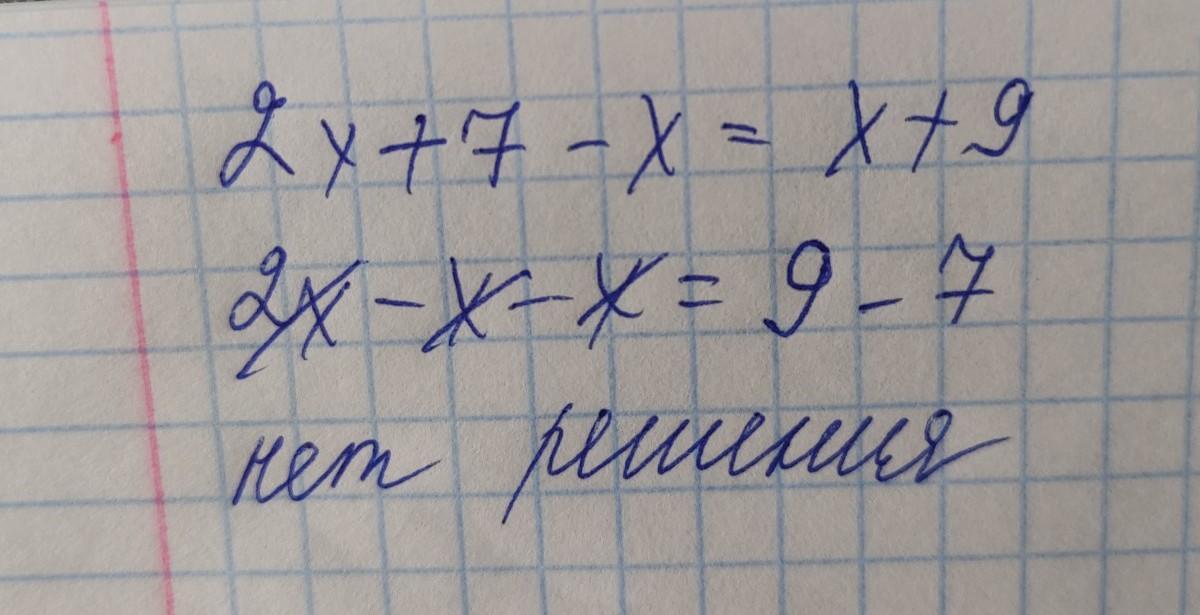 2x+7-x=x+9
2x-x-x=9-7
нет решения